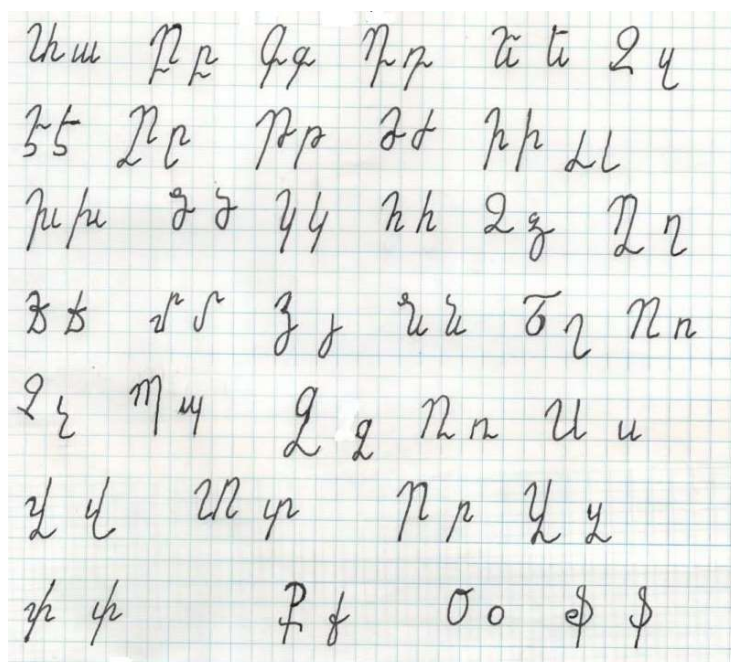 Աա Բբ Գգ Դդ Եե Զզ
Էէ Ըը Թթ Ժժ Իի Լլ
Խխ Ծծ Կկ Հհ Ձձ Ղղ
Ճճ Մմ Յյ Նն Շշ Ոո
Չչ Պպ Ջջ Ռռ Սս
Վվ Տտ Րր Ցց
Փփ Քք Օօ Ֆֆ